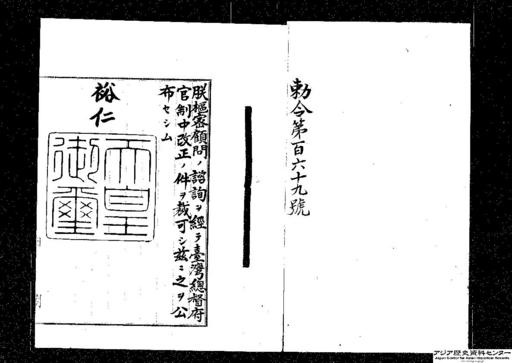 勅令第百六十九號
朕樞密顧問ノ諮詢ヲ經テ臺灣總督府
官制中改正ノ件ヲ裁可シ茲ニ之ヲ公
布セシム
裕仁
天皇
御璽
アジア歴史資料センター
Japan Center for Asian Historical Records